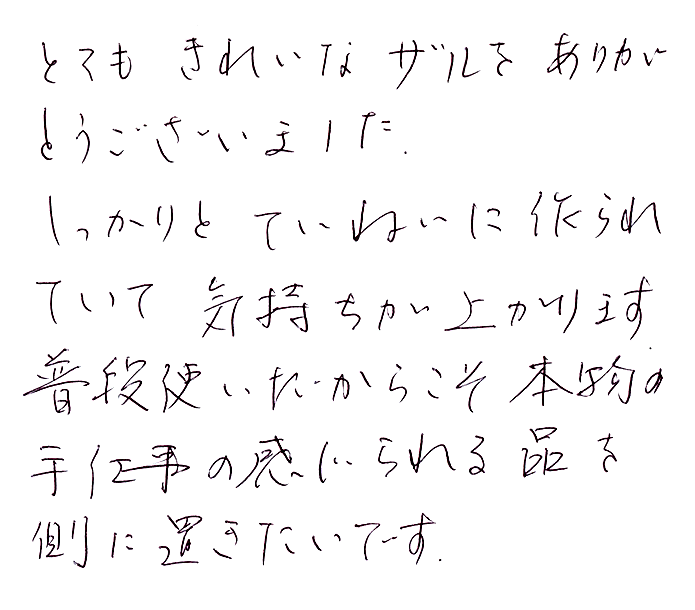 とてもきれいなザルをありが
とうございました.
しっかりとていねいに作られ
ていて 気持ちが上がります
普段使いだからこそ本物の
手仕事の感じられる品を
側に置きたいです.